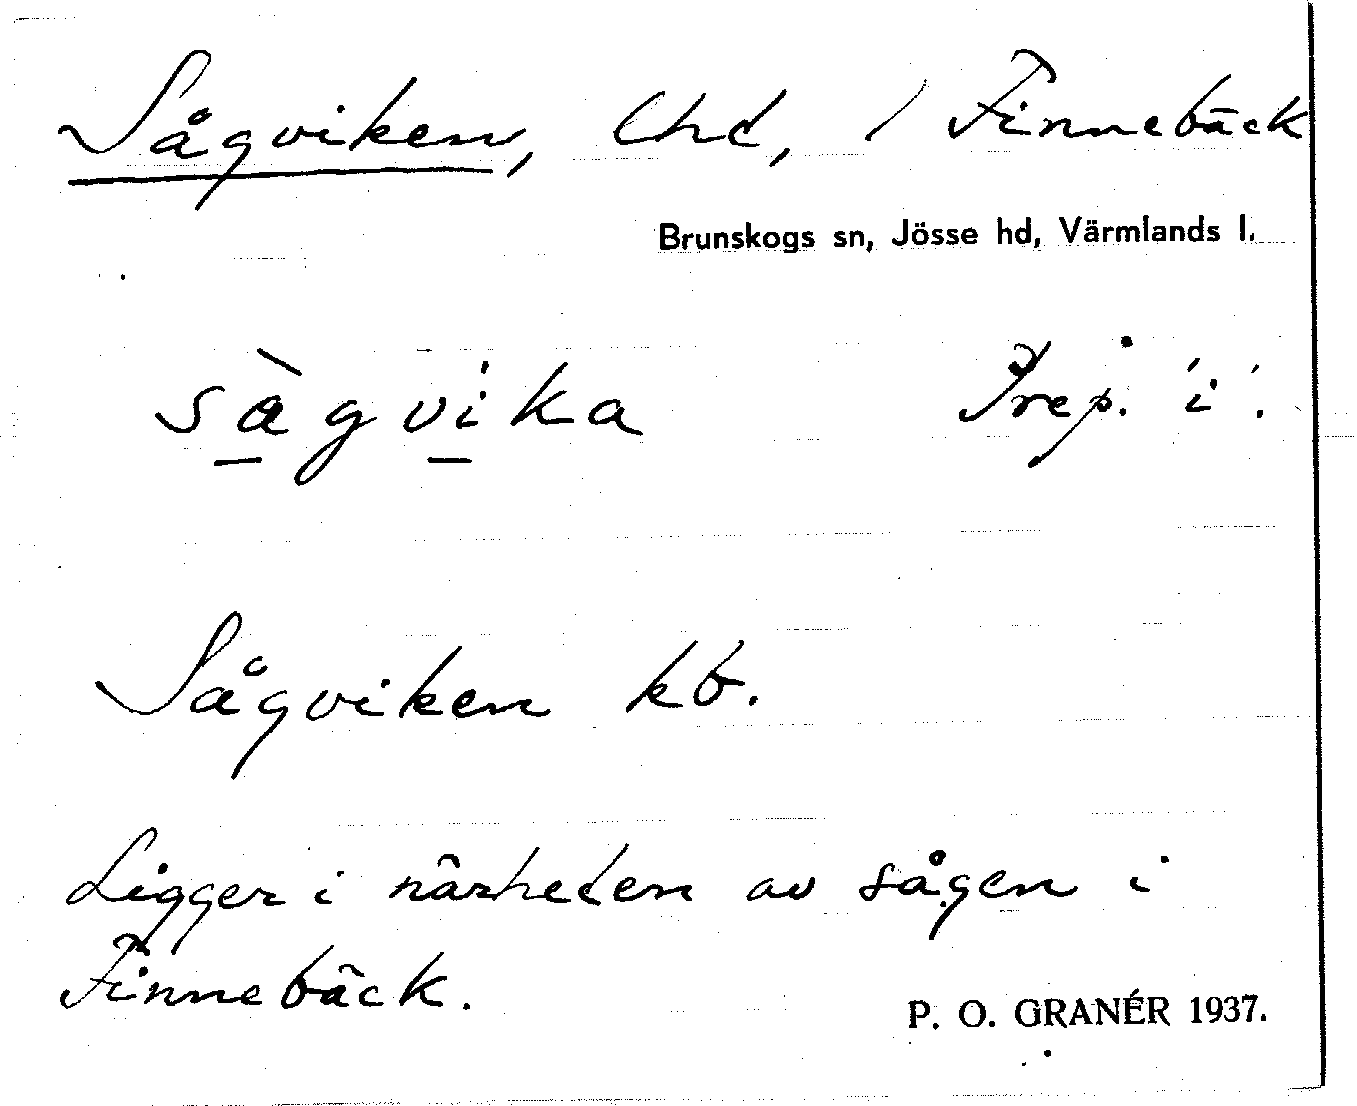 Sågviken, lhd, / Finnebäck
Brunskogs sn, Jösse hd, Värmlands l.
sàgvika Prep. 'i'.
Sågviken kb.
Ligger i närheten av sågen i
Finnebäck.
P. O. GRANÉR 1937.